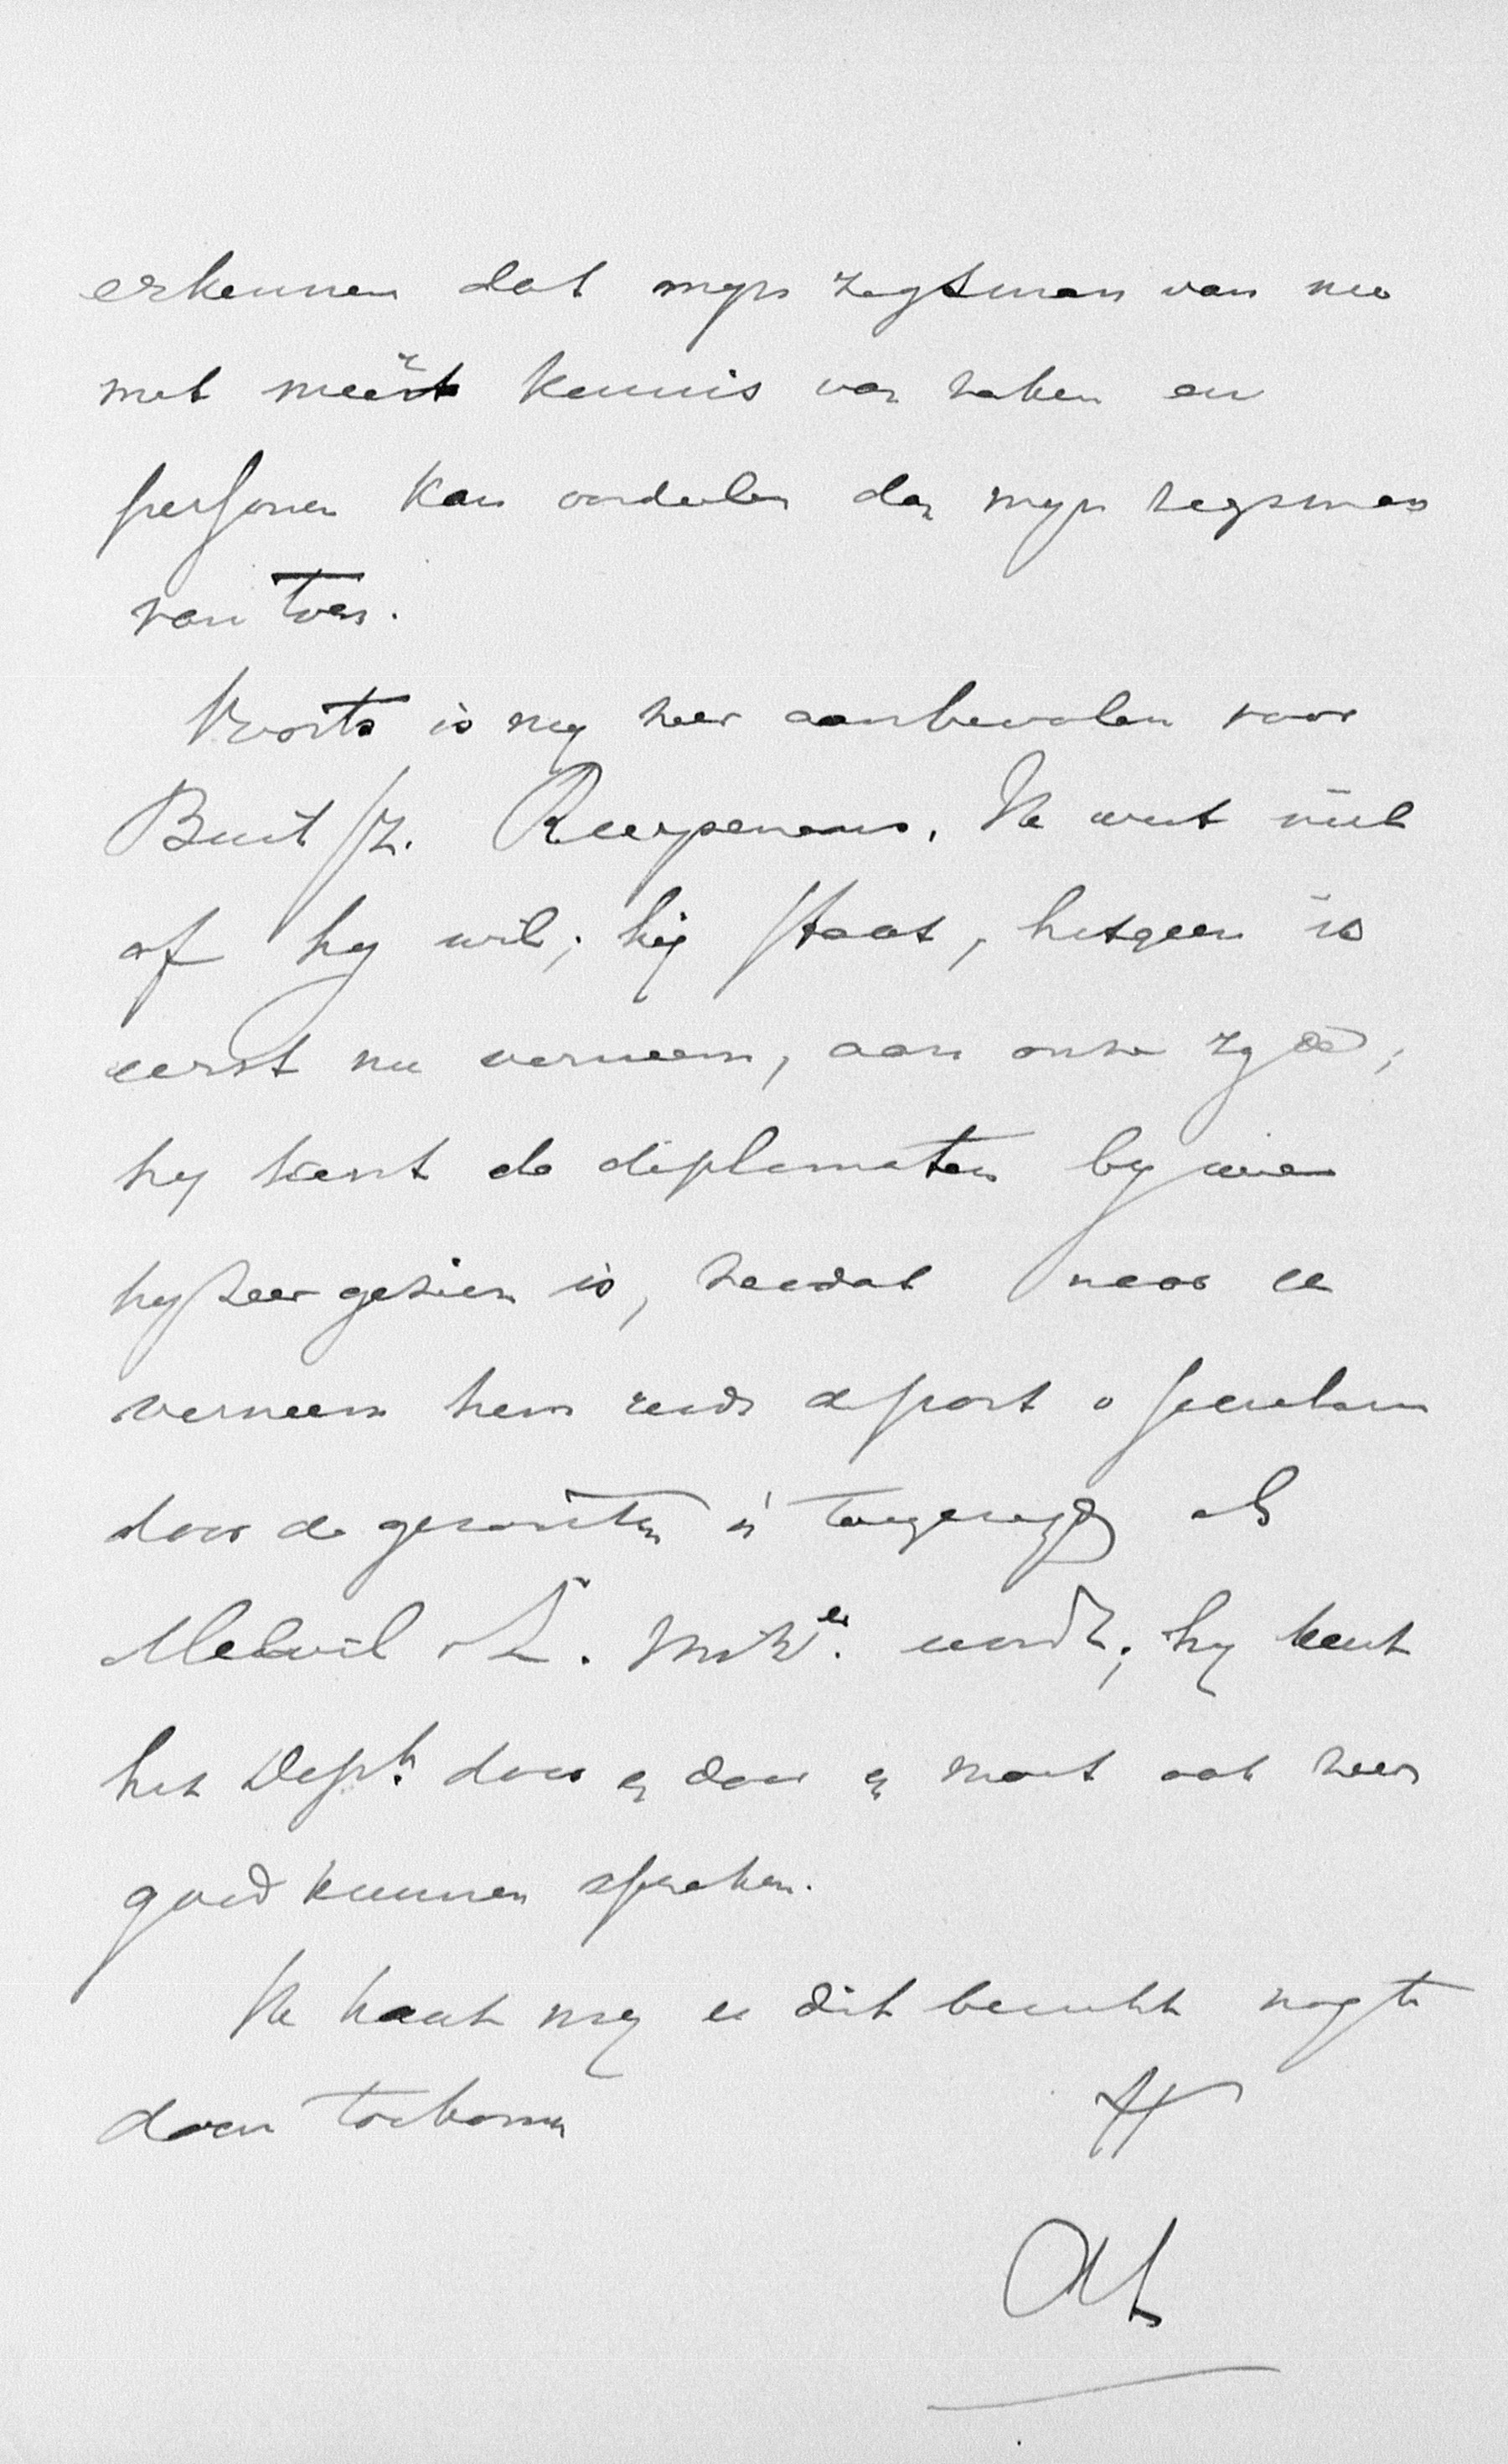 erkennen dat myn zegsman van nu
met meer kennis van zaken en
personen kan oordeelen dan myn zegsman
van toen.
Voorts is my zeer aanbevolen voor
Buit /Z. Ruyssenaers. Ik weet niet
of hy wil; hij staat, hetgeen ik
eerst nu verneem, aan onze zyde;
hy kent de diplomaten by wien
hy zeer gezien is, zoodat naar ik
verneem hem reeds apart
door de gezanten is toegezegd als
Melvil v. L. wordt; hy kent
het Dept. door en door en moet ook zeer
goed kunnen spreken.
Ik haast my u dit bericht nog te
doen toekomen